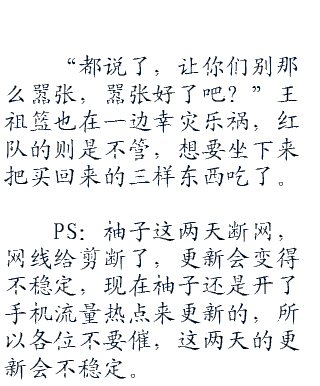 “都说了，让你们别那
么嚣张，嚣张好了吧？”王
祖篮也在一边幸灾乐祸，红
队的则是不管，想要坐下来
把买回来的三样东西吃了。
PS：柚子这两天断网，
网线给剪断了，更新会变得
不稳定，现在柚子还是开了
手机流量热点来更新的，所
以各位不要催，这两天的更
新会不稳定。